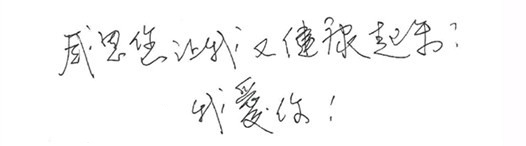 感恩您让我又健康起来！
我爱你！